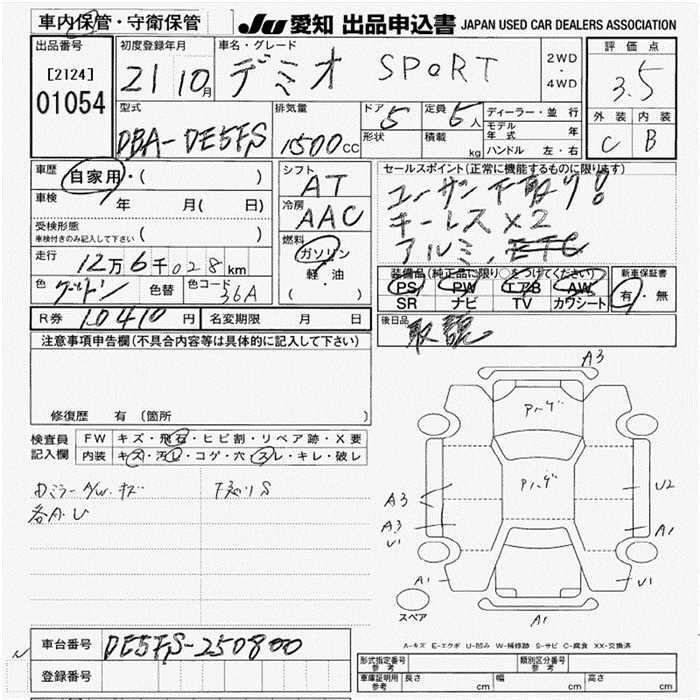 車内保管・守衛保管
JU 愛知 出品申込書 JAPAN USED CAR DEALERS ASSOCIATION
出品番号
[2124]
01054
初度登録年月
21 10月
車名・グレード
デミオ SPORT
2WD
・
4WD
評価点
3.5
外装 内装
C B
型式
DBA-DE5FS
排気量
1500cc
ドア 5
形状
定員 5人
積載 kg
ディーラー・並行
モデル年式 年
ハンドル 左・右
車歴 自家用・( )
車検 年 月( 日)
受検形態
車検付きのみ記入して下さい ( )
走行 12万6千028km
色 ゴールドン 色替 色コード 36A
シフト
AT
冷房
AAC
燃料
ガソリン
軽・油
( ・ )
セールスポイント(正常に機能するものに限ります)
ユーザー下取り!
キーレス×2
アルミ、ETC
装備品(純正品に限り○をつけてください)
PS PW エアB AW
SR ナビ TV カワシート
新車保証書
有・無
後日品
取説
R券 10410円 名変期限 月 日
注意事項申告欄(不具合内容等は具体的に記入して下さい)
修復歴 有 (箇所 )
検査員記入欄
FW キズ・飛石・ヒビ割・リペア跡・X要
内装 キズ・汚レ・コゲ・穴・スレ・キレ・破レ
各A.U
A3
A3
A3
U1
A1
U2
A1
U1
A1
スペア
A-キズ E-エクボ U-凹み W-補修跡 S-サビ C-腐食 XX-交換済
車台番号 DE5FS-250800
登録番号
型式指定番号 参考
類別区分番号 参考
車庫証明用 参考 長さ cm 幅 cm 高さ cm